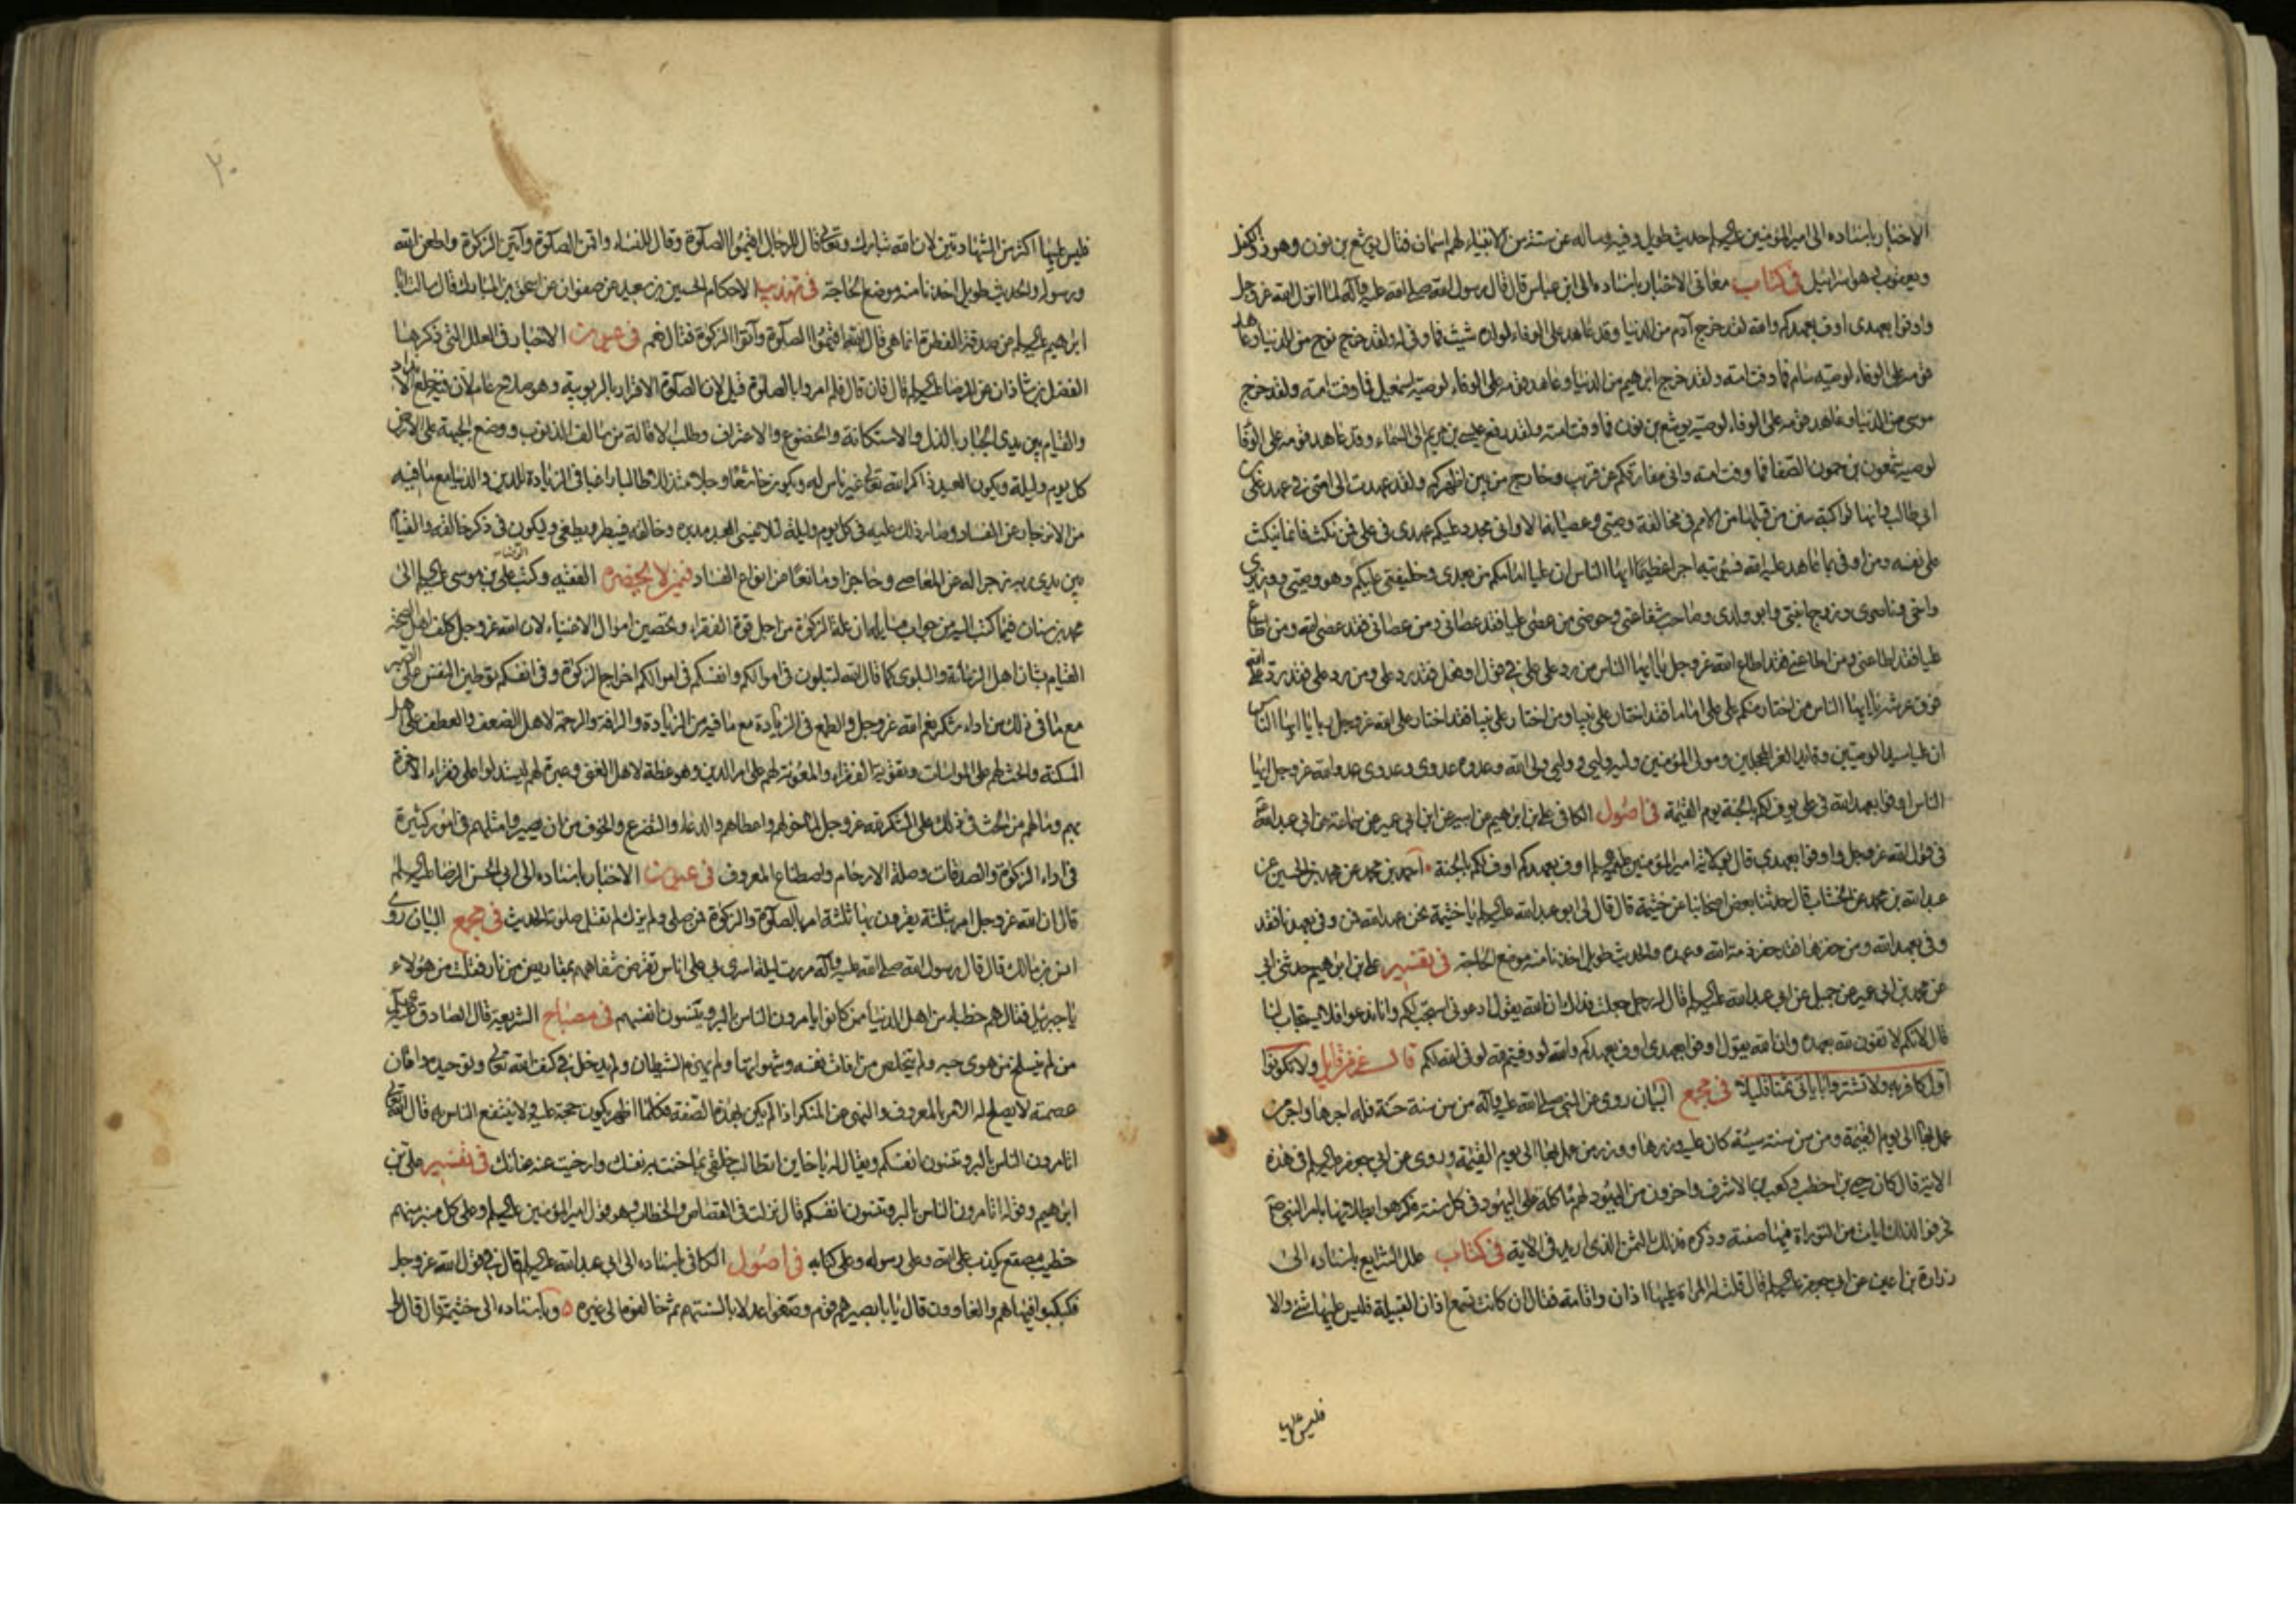 الاخبار باسناده الى امير المؤمنين عليه السلام حديث طويل وفيه وساله عن ستة من الانبياء لهم اسمان فقال يوشع بن نون وهو ذو الكفل
ويعقوب وهو اسرائيل في كتاب معانى الاخبار باسناده الى ابن عباس قال قال رسول الله صلى الله عليه وآله لما انزل الله عز وجل
واوفوا بعهدى اوف بعهدكم والله لقد خرج آدم من الدنيا وقد عاهد على الوفاء لولده شيث فما وفى له ولقد خرج نوح من الدنيا وعاهد
قومه على الوفاء لوصيه سام فما وفت امته ولقد خرج ابرهيم من الدنيا وعاهد قومه على الوفاء لوصيه اسمعيل فما وفت امته ولقد خرج
موسى من الدنيا وعاهد قومه على الوفاء لوصيه يوشع بن نون فما وفت امته ولقد رفع عيسى بن مريم الى السماء وقد عاهد قومه على الوفا
لوصيه شمعون بن حمون الصفا فما وفت امته وانى مفارقكم عن قريب وخارج من بين اظهركم ولقد عهدت الى امتى في عهد على بن
ابى طالب وانها لراكبة سنن من قبلها من الامم في مخالفة وصيى وعصيانه الا وانى مجدد عليكم عهدى فى على فمن نكث فانما ينكث
على نفسه ومن اوفى بما عاهد عليه الله فسيؤتيه اجرا عظيما ايها الناس ان عليا امامكم من بعدى وخليفتى عليكم وهو وصيى ووزيرى
واخى وناصرى وزوج ابنتى وابو ولدى وصاحب شفاعتى وحوضى من عصى عليا فقد عصانى ومن عصانى فقد عصى الله ومن اطاع
عليا فقد اطاعنى ومن اطاعنى فقد اطاع الله عز وجل يا ايها الناس من رد على على في قول او فعل فقد رد على ومن رد على فقد رد على الله
فوق عرشه يا ايها الناس من اختار منكم على على اماما فقد اختار على نبيا ومن اختار على نبيا فقد اختار على الله عز وجل ربا يا ايها الناس
ان عليا سيد الوصيين وقايد الغر المحجلين ومولى المؤمنين وليه وليى ووليى ولى الله وعدوه عدوى وعدوى عدو الله عز وجل ايها
الناس اوفوا بعهد الله فى على يوف لكم بالجنة يوم القيمة فى اصول الكافى على بن ابرهيم عن ابيه عن ابن ابى عمير عن سماعة عن ابى عبد الله
فى قول الله عز وجل واوفوا بعهدى قال بولاية امير المؤمنين عليه السلام اوف بعهدكم اوف لكم بالجنة احمد بن محمد عن محمد بن الحسين عن
عبد الله بن محمد عن الخشاب قال حدثنا بعض اصحابنا عن خيثمة قال قال لى ابو عبد الله عليه السلام يا خيثمة نحن عهد الله فمن وفى بعهدنا فقد
وفى بعهد الله ومن خفرها فقد خفر ذمة الله وعهده والحديث طويل اخذنا منه موضع الحاجة فى تفسير على بن ابرهيم حدثنى ابى
عن محمد بن ابى عمير عن جميل عن ابى عبد الله عليه السلام قال له رجل جعلت فداك ان الله يقول ادعونى استجب لكم وانا ندعو فلا يستجاب لنا
قال لانكم لا تفون لله بعهده وان الله يقول اوفوا بعهدى اوف بعهدكم والله لو وفيتم لله لوفى الله لكم قال عز من قايل ولا تكونوا
اول كافر به ولا تشتروا باياتى ثمنا قليلا فى مجمع البيان روى عن النبى صلى الله عليه وآله من سن سنة حسنة فله اجرها واجر من
عمل بها الى يوم القيمة ومن سن سنة سيئة كان عليه وزرها ووزر من عمل بها الى يوم القيمة وروى عن ابى جعفر عليه السلام فى هذه
الاية قال كان حى بن اخطب وكعب بن الاشرف واخرون من اليهود لهم مأكلة على اليهود فى كل سنة فكرهوا بطلانها بامر النبى ص
فحرفوا لذلك ايات من التوراة فيها صفته وذكره فذلك الثمن الذى اريد فى الاية فى كتاب علل الشرايع باسناده الى
زرارة بن اعين عن ابى جعفر عليه السلام قال قلت له المراة عليها اذان واقامة فقال ان كانت تسمع اذان القبيلة فليس عليها شئ والا
فليس عليها
٢٠
فليس عليها اكثر من الشهادتين لان الله تبارك وتعالى قال للرجال اقيموا الصلوة وقال للنساء واقمن الصلوة وآتين الزكوة واطعن الله
ورسوله والحديث طويل اخذنا منه موضع الحاجة فى تهذيب الاحكام الحسين بن سعيد عن صفوان عن اسحق بن المبارك قال سالت ابا
ابرهيم عليه السلام عن صدقة الفطرة اهى مما قال الله اقيموا الصلوة وآتوا الزكوة فقال نعم فى عيون الاخبار فى العلل التى ذكرها
الفضل بن شاذان عن الرضا عليه السلام قال فان قال فلم امروا بالصلوة قيل لان الصلوة الاقرار بالربوبية وهو صلاح عام لان فيه خلع الانداد
والقيام بين يدى الجبار بالذل والاستكانة والخضوع والاعتراف وطلب الاقالة من سالف الذنوب ووضع الجبهة على الارض
كل يوم وليلة ويكون العبد ذاكرا لله تعالى غير ناس له ويكون خاشعا وجلا متذللا طالبا راغبا فى الزيادة للدين والدنيا مع ما فيه
من الانزجار عن الفساد وصار ذلك عليه فى كل يوم وليلة لئلا ينسى العبد مدبره وخالقه فيبطر ويطغى وليكون فى ذكر خالقه والقيام
بين يدى ربه زجرا له عن المعاصى وحاجزا ومانعا عن انواع الفساد فيمن لا يحضره الفقيه وكتب الرضا على بن موسى عليه السلام الى
محمد بن سنان فيما كتب اليه من جواب مسايله ان علة الزكوة من اجل قوت الفقراء وتحصين اموال الاغنياء لان الله عز وجل كلف اهل الصحة
القيام بشان اهل الزمانة والبلوى كما قال الله لتبلون فى اموالكم وانفسكم فى اموالكم اخراج الزكوة وفى انفسكم توطين النفس على الصبر
مع ما فى ذلك من اداء شكر نعم الله عز وجل والطمع فى الزيادة مع ما فيه من الزيادة والرافة والرحمة لاهل الضعف والعطف على اهل
المسكنة والحث لهم على المواسات وتقوية الفقراء والمعونة لهم على امر الدين وهو عظة لاهل الغنى وعبرة لهم ليستدلوا على فقراء الاخرة
بهم وما لهم من الحث فى ذلك على الشكر لله عز وجل لما خولهم واعطاهم والدعاء والتضرع والخوف من ان يصيروا مثلهم فى امور كثيرة
فى اداء الزكوة والصدقات وصلة الارحام واصطناع المعروف فى عيون الاخبار باسناده الى ابى الحسن الرضا عليه السلام
قال ان الله عز وجل امر بثلثة يقرون بها ثلثة امر بالصلوة والزكوة فمن صلى ولم يزك لم تقبل صلوته الحديث فى مجمع البيان روى
انس بن مالك قال قال رسول الله صلى الله عليه وآله مررت ليلة اسرى بى على اناس تقرض شفاههم بمقاريض من نار فقلت من هؤلاء
يا جبرئيل فقال هم خطباء من اهل الدنيا ممن كانوا يامرون الناس بالبر وينسون انفسهم فى مصباح الشريعة قال الصادق عليه السلام
من لم ينسلخ من هوى جسه ولم يتخلص من افات نفسه وشهواتها ولم يهزم الشيطان ولم يدخل فى كنف الله تعالى وتوحيده وامان
عصمته لا يصلح له الامر بالمعروف والنهى عن المنكر اذا لم يكن بهذه الصفة فكلما اظهر يكون حجة عليه ولا ينتفع الناس به قال الله تعالى
اتامرون الناس بالبر وتنسون انفسكم ويقال له يا خاين اتطالب خلقى بما خنت به نفسك وارخيت عنه عنانك فى تفسير على بن
ابرهيم وقوله اتامرون الناس بالبر وتنسون انفسكم قال نزلت فى القصاص والخطاب وهو قول امير المؤمنين عليه السلام وعلى كل منبر منهم
خطيب مصقع يكذب على الله وعلى رسوله وعلى كتابه فى اصول الكافى باسناده الى ابى عبد الله عليه السلام قال فى قول الله عز وجل
فكبكبوا فيها هم والغاوون قال يا با بصير هم قوم وصفوا عدلا بالسنتهم ثم خالفوه الى غيره وباسناده الى خيثمة قال قال لى